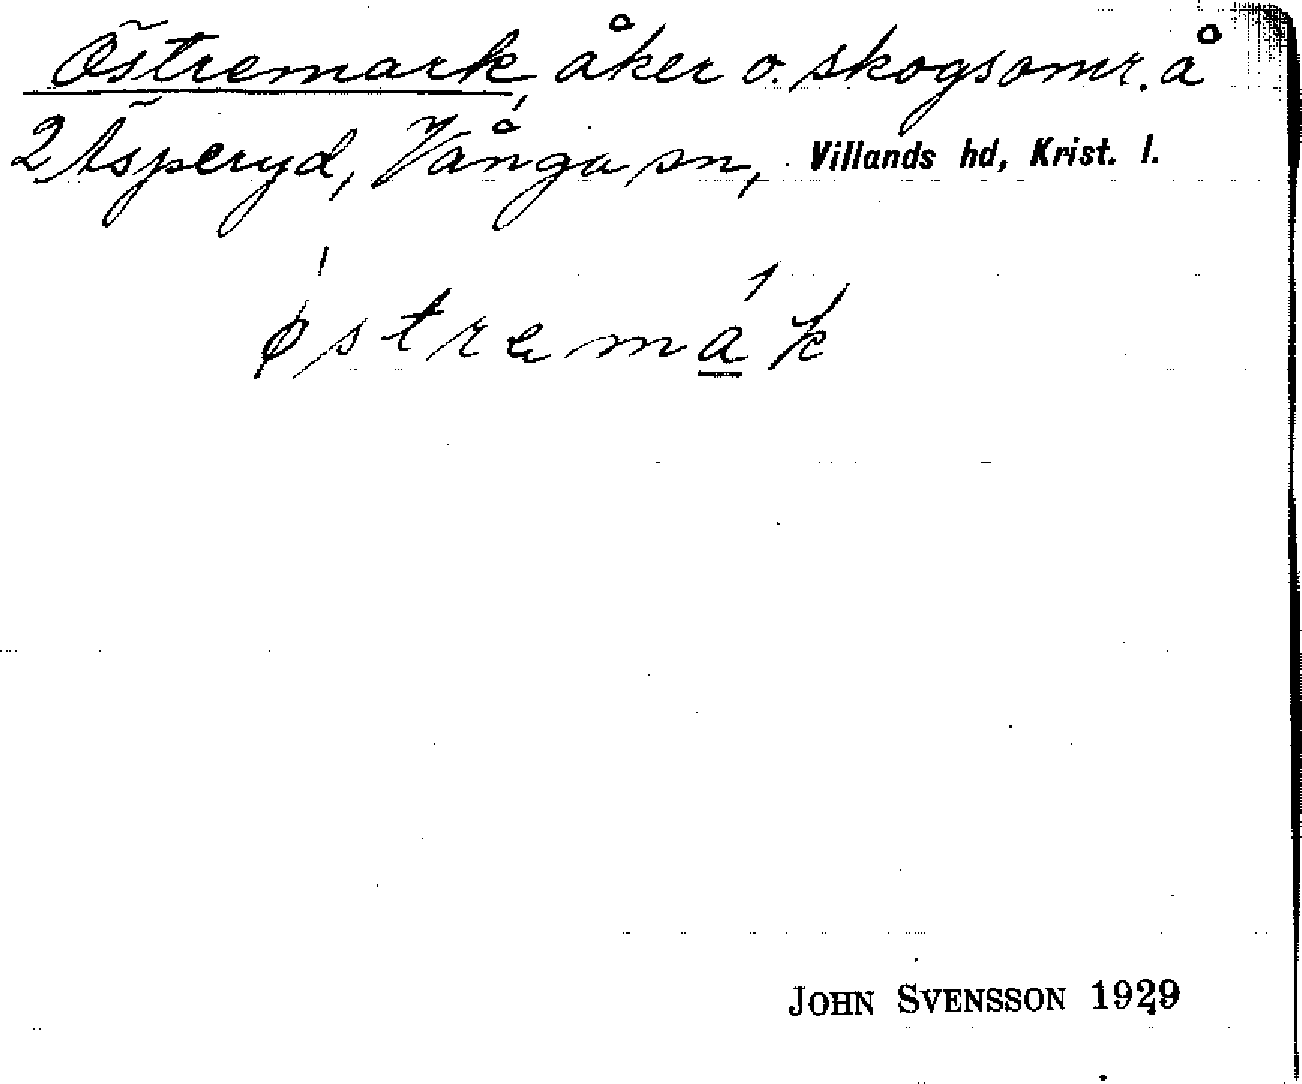 Östremark, åker o. skogsomr. å
2 Äsperyd, Vånga sn, Villands hd, Krist. l.
østremak
JOHN SVENSSON 1929